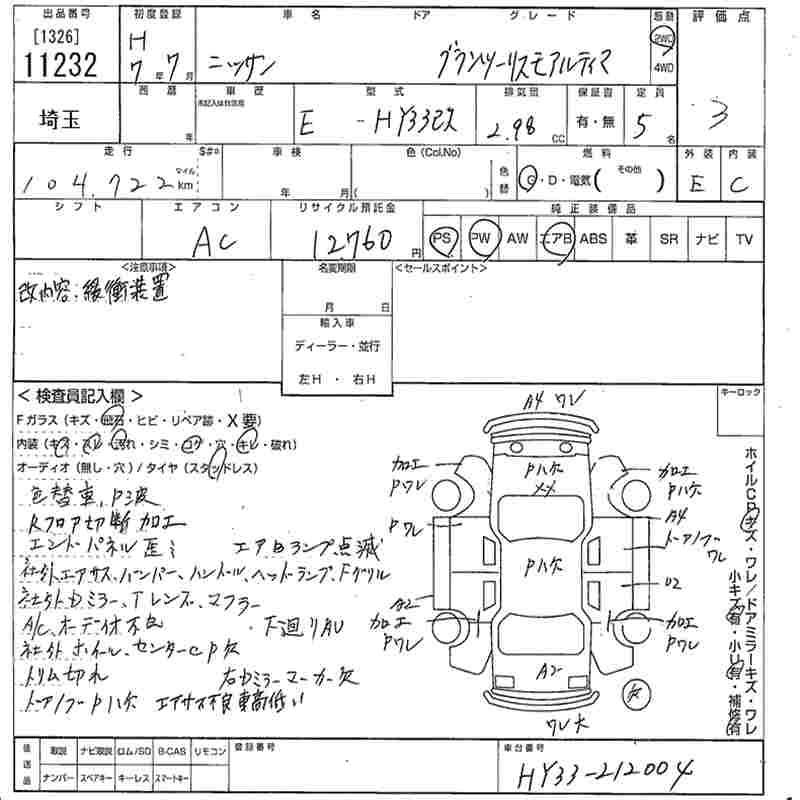 出品番号 初度登録 車名 ドア グレード 駆動 評価点
[1326] H 2WD
11232 7年 7月 ニッサン グランツーリスモアルティマ 4WD
西暦 車歴 型式 排気量 保証書 定員 3
埼玉 年 未記入は自家用 E - HY33改 2.98cc 有・無 5名
走行 S#o 車検 色(Col.No) 色替 燃料 外装 内装
104,722 マイル km 年 月 ( ) G・D・電気( その他 ) E C
シフト エアコン リサイクル預託金 純正装備品
AC 12760円 PS PW AW エアB ABS 革 SR ナビ TV
<注意事項> 名変期限 <セールスポイント>
改内容:緩衝装置
月 日
輸入車
ディーラー・並行
左H・右H
<検査員記入欄> キーロック
Fガラス(キズ・飛石・ヒビ・リペア跡・X要)
内装(キズ・スレ・汚れ・シミ・コゲ・穴・キレ・破れ)
オーディオ(無し・穴)/タイヤ(スタッドレス)
色替車、P波
Rフロア切断加工
エンドパネル歪ミ エアBランプ点滅
社外エアサス、バンパー、ハンドル、ヘッドランプ、Fグリル
社外Dミラー、Tレンズ、マフラー
A/C、オーディオ不良 下廻りAU
社外ホイール、センターCP欠
トリム切れ 右Dミラーマーカー欠
ドアノブPハゲ エアサス不良車高低い
A4 ワレ
加工 Pワレ
Pハゲ
XX
加工 Pハゲ
Pワレ
A4
ドアノブ ワレ
Pハゲ
U2
A2
加工 Pワレ
加工 Pワレ
A2
欠
ワレ大
ホイルCPキズ・ワレ/ドアミラーキズ・ワレ
小キズ有・小U有・補修有
後送品 取説 ナビ取説 ロム/SD B-CAS リモコン 登録番号 車台番号
ナンバー スペアキー キーレス スマートキー HY33-212004